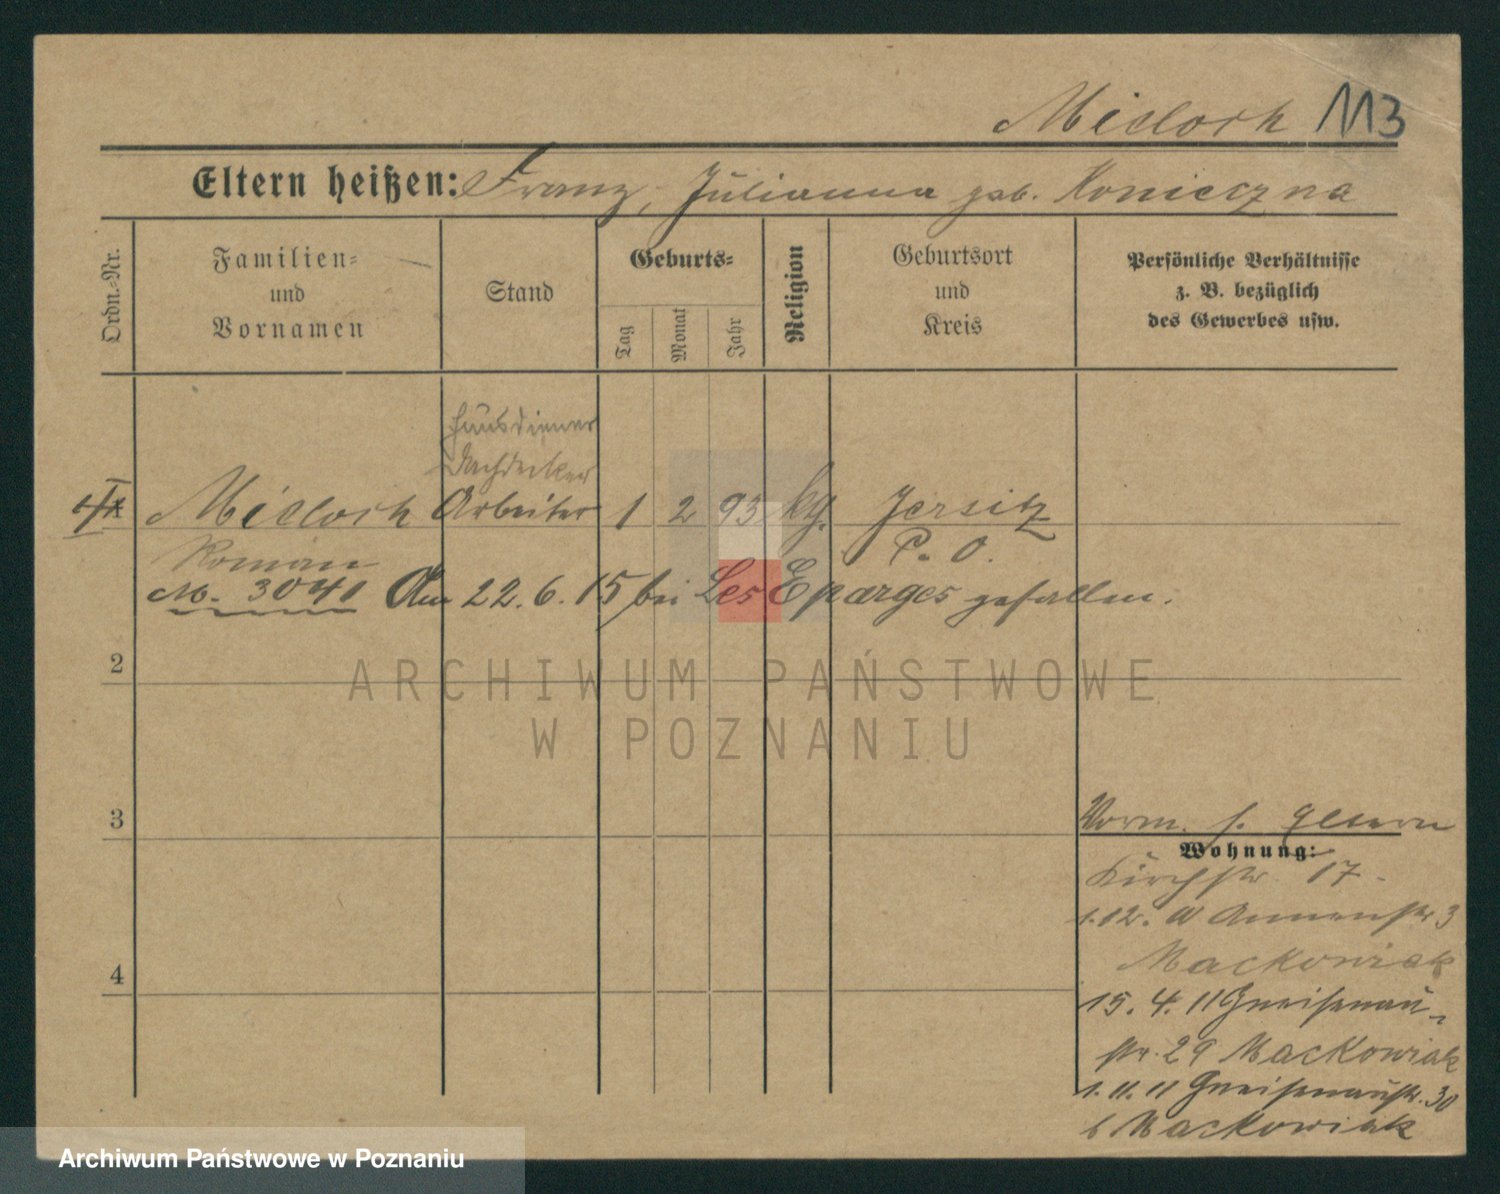 Micloch 113
Eltern heißen: Franz, Julianna geb. Konieczna
Ordn.-Nr.
Familien-
und
Vornamen
Stand
Geburts-
Tag
Monat
Jahr
Religion
Geburtsort
und
Kreis
Persönliche Verhältnisse
z. B. bezüglich
des Gewerbes usw.
Hausdiener
Dachdecker
Micloch Arbeiter 1 2 93 kg. Jersitz
Roman P. O.
M. 3040 Am 22.6.15 bei Les Eparges gefallen.
2
3
4
Vorm. s. Eltern
Wohnung:
Kirchstr. 17.
1.12. Annenstr 3
Mackowiak
15. 4. 11 Gneisenau-
str. 29 Mackowiak
1. 11. 11 Gneisenaustr. 30
b Mackowiak
ARCHIWUM PAŃSTWOWE
W POZNANIU
Archiwum Państwowe w Poznaniu